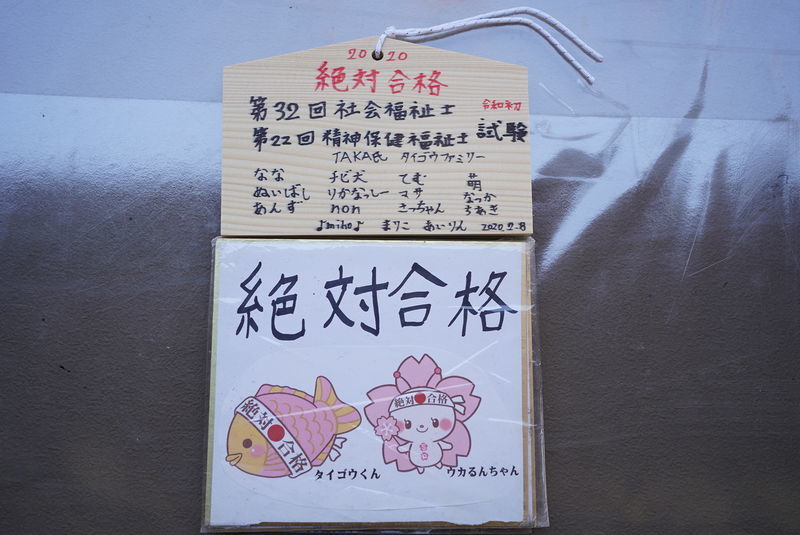 2020
絶対合格
第32回社会福祉士 令和初
第22回精神保健福祉士 試験
TAKA氏 タイゴウファミリー
なな チビ犬 てむ 萌
ぬいばし りかなっしー マサ なつか
あんず non さっちゃん ちあき
♪miho♪ まりこ あいりん 2020.2.8
絶対合格
絶対合格
絶対合格
タイゴウくん ウカるんちゃん